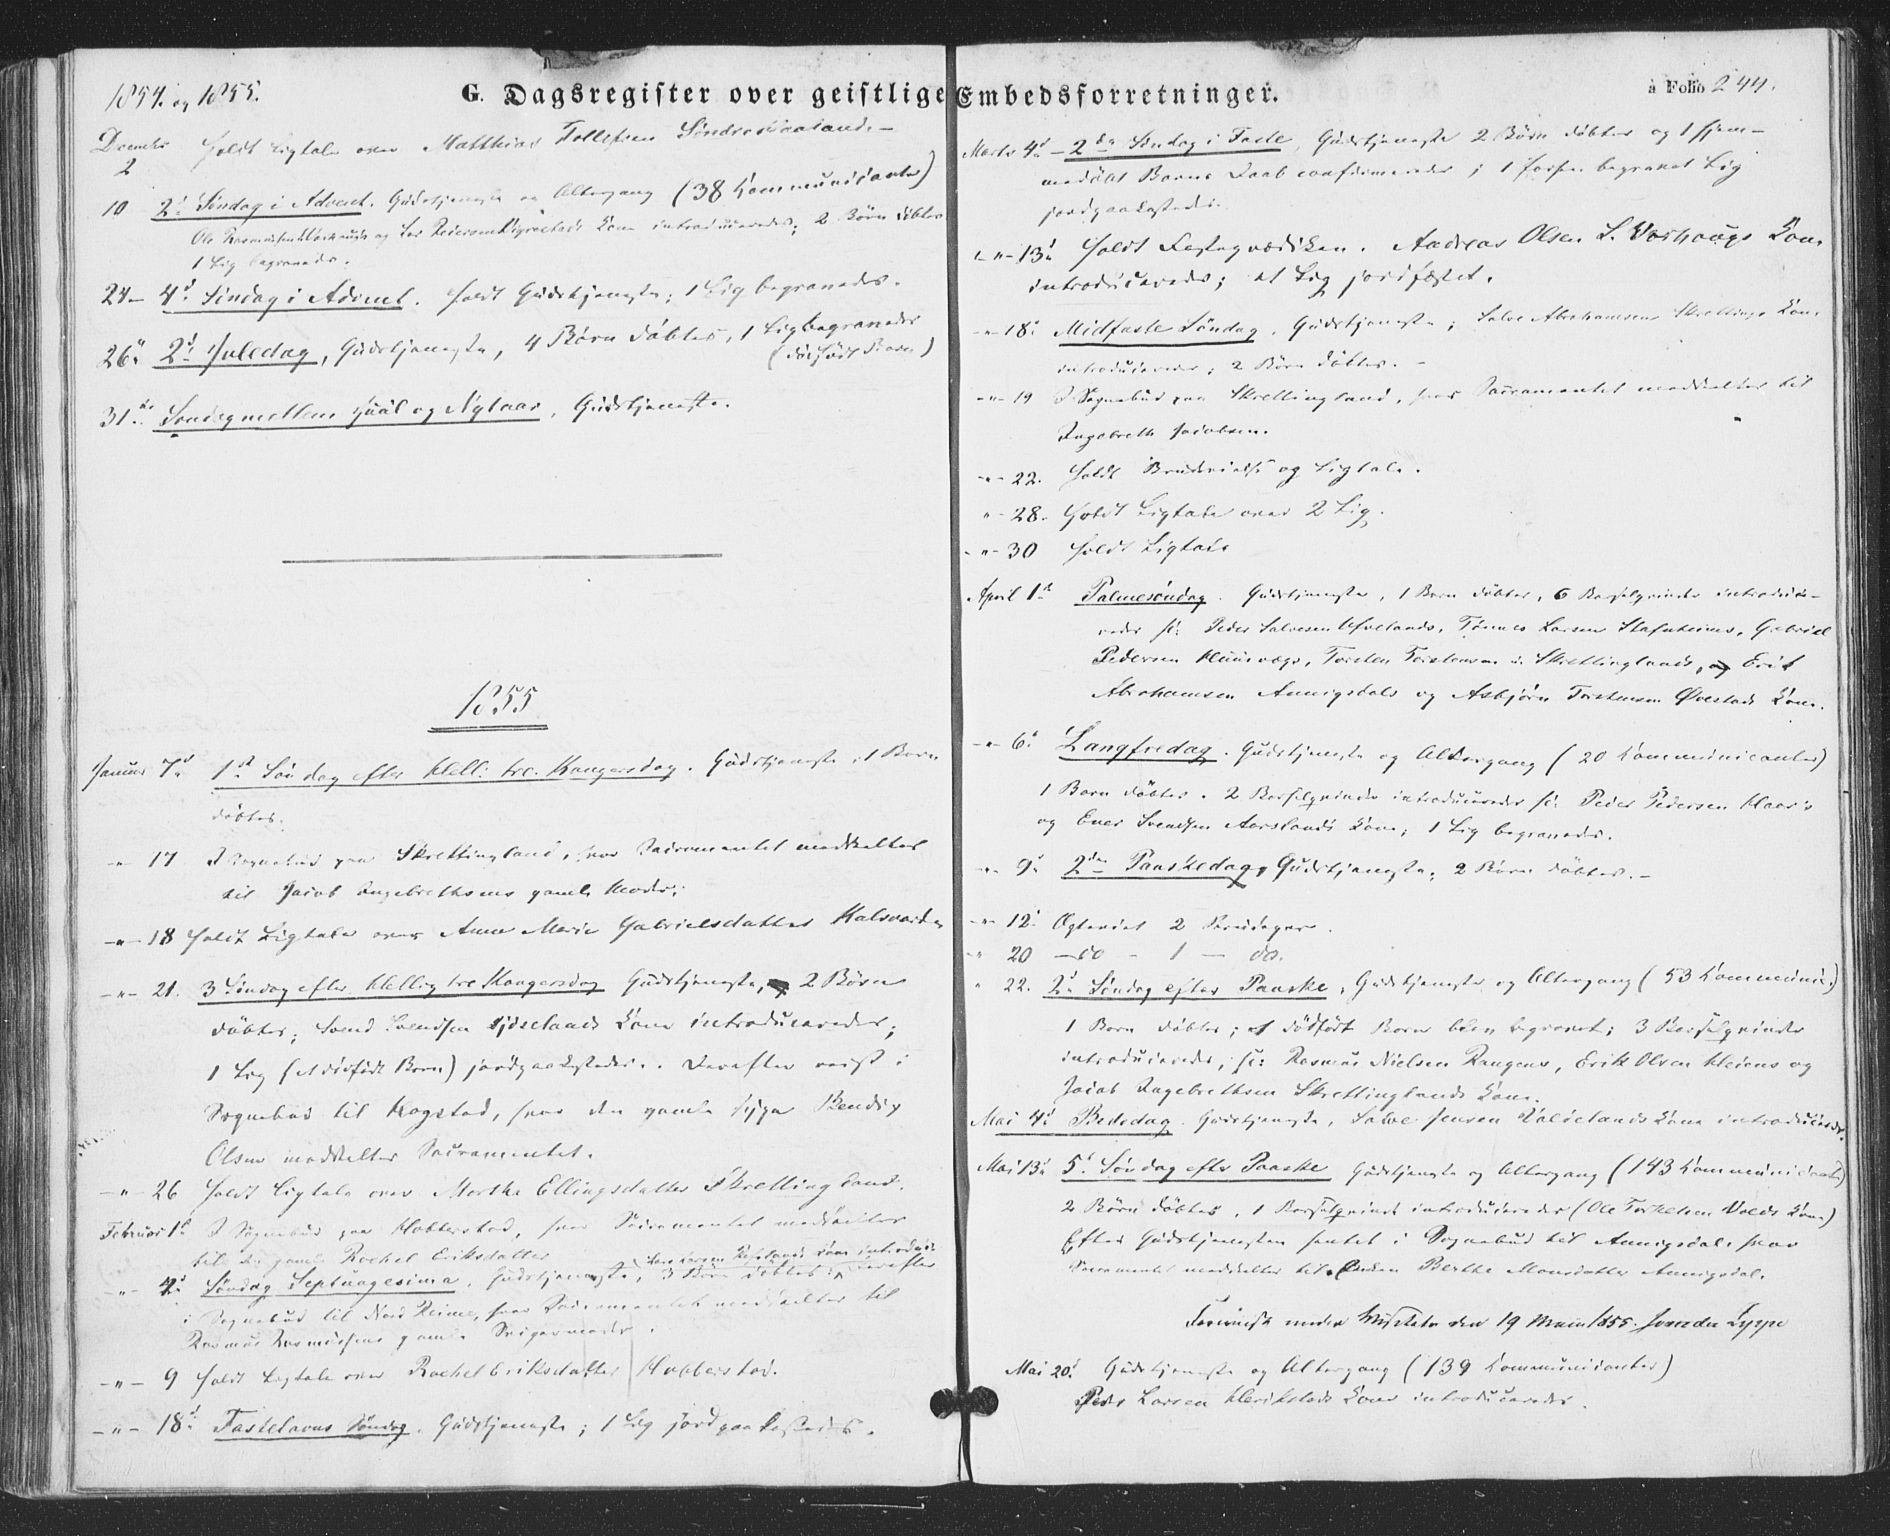 1854. og 1855.
G. Dagsregister over geistlige Embedsforretninger.
à Folio 244.
December
2 Holdt Ligtale over Matthias Tollefsen
10 2d Søndag i Advent. Gudstjeneste og Altergang (38 Kommunicanter)
Ole Kone introduceredes; 2 Børn døbtes
1 Lig begravedes.
24 – 4d Søndag i Advent. Holdt Gudstjeneste; 1 Lig begravedes.
26d 2d Juledag, Gudstjeneste, 4 Børn døbtes, 1 Lig begravedes
(dødfødt Barn)
31te Søndag mellem Juul og Nytaar, Gudstjeneste.
1855
Januar 7d 1st Søndag efter Hell: tre Kongersdag. Gudstjeneste, 1 Barn
døbtes.
-"- 17 I Sognebud paa Skrettingland, hvor Sacramentet meddeltes
til Jacob Ingebrethsens gamle Moder.
-"- 18 Holdt Ligtale over Anne Marie Gabrielsdatter
-"- 21. 3 Søndag efter Hellig tre Kongersdag Gudstjeneste, 2 Børn
døbtes; Svend Svendsen Kone introduceredes;
1 Lig (et dødfødt Barn) jordpaakastedes. Derefter reist i
Sognebud til Hogstad, hvor den gamle syge Bendix
Olsen meddeltes Sacramentet.
-"- 26 Holdt Ligtale over Marthe Ellingsdatter Skrettingland.
Februar 1d I Sognebud paa Hobberstad, hvor Sacramentet meddeeltes
til gamle Rachel Eriksdatter
Larsen Kone introduc.
-"- 4d Søndag Septuagesima, Gudstjeneste, 3 Børn døbtes; derefter
i Sognebud til Nord Reime, hvor Sacramentet meddeeltes til
Rasmus Rasmussens gamle Svigermoder.
-"- 9 Holdt Ligtale over Rachel Eriksdatter Hobberstad.
-"- 18d Fastelavns Søndag. Gudstjeneste; 1 Lig jordpaakastedes.
Marts 4d – 2den Søndag i Faste, Gudstjeneste 2 Børn døbtes og 1 hjem-
medøbt Barns Daab confirmeredes; 1 forhen begravet Lig
jordpaakastedes.
-"- 13d Holdt Fasteprædiken. Andreas Olsen L. Varhougs Kone
introduceredes; et Lig jordfæstet.
-"- 18d Midfaste Søndag. Gudstjeneste; Salve Abrahamsen Skrettings Kone
introduceredes; 2 Børn døbtes. –
-"- 19 I Sognebud paa Skrettingland, hvor Sacramentet meddeeltes til
Ingebreth Jacobsen.
-"- 22. Holdt Brudevielse og Ligtale.
-"- 28. Holdt Ligtale over 2 Lig.
-"- 30 Holdt Ligtale
April 1st Palmesøndag. Gudstjeneste, 1 Barn døbtes, 6 Barselqvinder introduce-
redes sc: Peder Salvesen Tønnes Larsen Gabriel
Pedersen Torsten Torstensen Skrettinglands, og Erik
Abrahamsen Aanigsdals og Asbjørn Torstensen Kone.
-"- 6d Langfredag. Gudstjeneste og Altergang (20 Kommunicanter)
1 Barn døbtes. 2 Barselqvinder introduceredes sc: Peder Pedersen
og Svendsen Aarslands Kone; 1 Lig begravedes.
-"- 9d 2den Paaskedag, Gudstjeneste; 2 Børn døbtes. –
-"- 12d Ægteviet 2 Brudepar.
" 20 – do – 1 – do.
" 22. 2d Søndag efter Paaske, Gudstjeneste og Altergang (53 Kommunic.)
1 Barn døbtes; et dødfødt Barn blev begravet; 3 Barselqvinder
introduceredes, sc: Rasmus Nielsen Haugens, Erik Olsen og
Jacob Ingebrethsen Skrettinglands Kone.
Mai 4d Bededag. Gudstjeneste, Salve Jensen Kone introduceredes.
Mai 13d 5d Søndag efter Paaske Gudstjeneste og Altergang (143 Kommunicanter)
2 Børn døbtes, 1 Barselqvinde introduceredes (Ole Torkelsen Kone)
Efter Gudstjenesten hentet i Sognebud til Aanigsdal, hvor
Sacramentet meddeeltes til Enken Berthe Monsdatter Aanigsdal.
under Visitats den 19 Mai 1855.
Mai 20d Gudstjeneste og Altergang (139 Kommunicanter)
Peder Larsen Kone introduceredes.